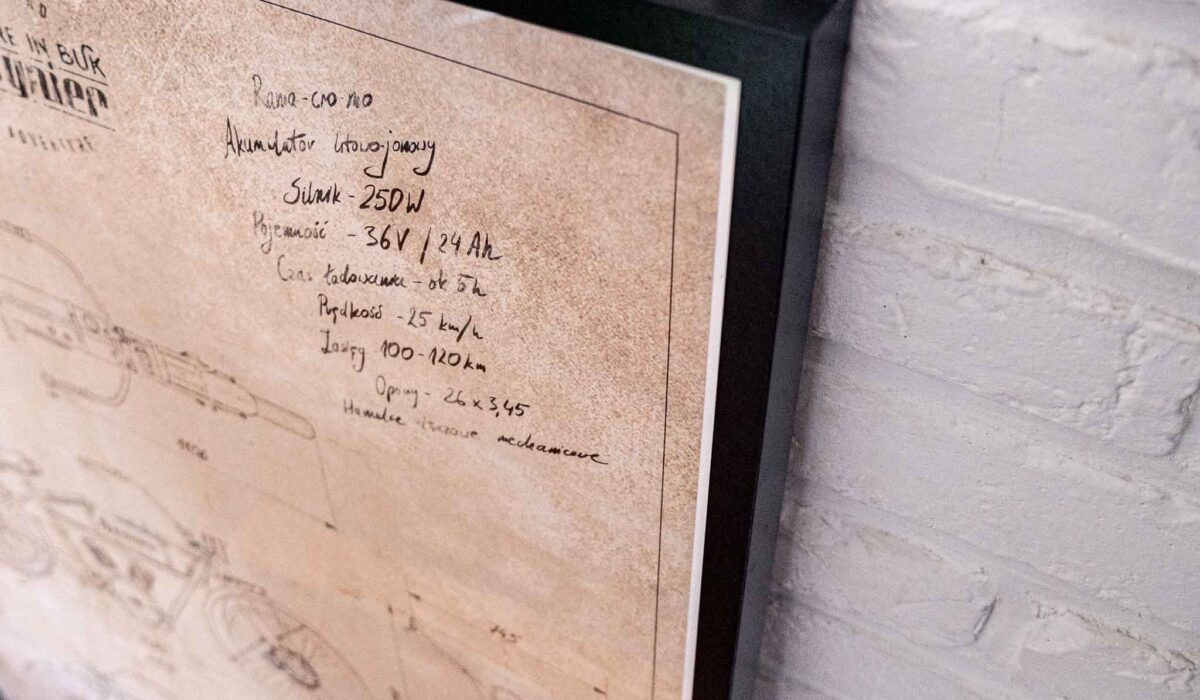 IN BUK
ADVENTURE
Rama - cro-mo
Akumulator litowo-jonowy
Silnik - 250W
Pojemność - 36V / 24 Ah
Czas ładowania - ok 5h
Prędkość - 25 km/h
Zasięg 100-120 km
Opony - 26 x 3,45
Hamulce tarczowe mechaniczne